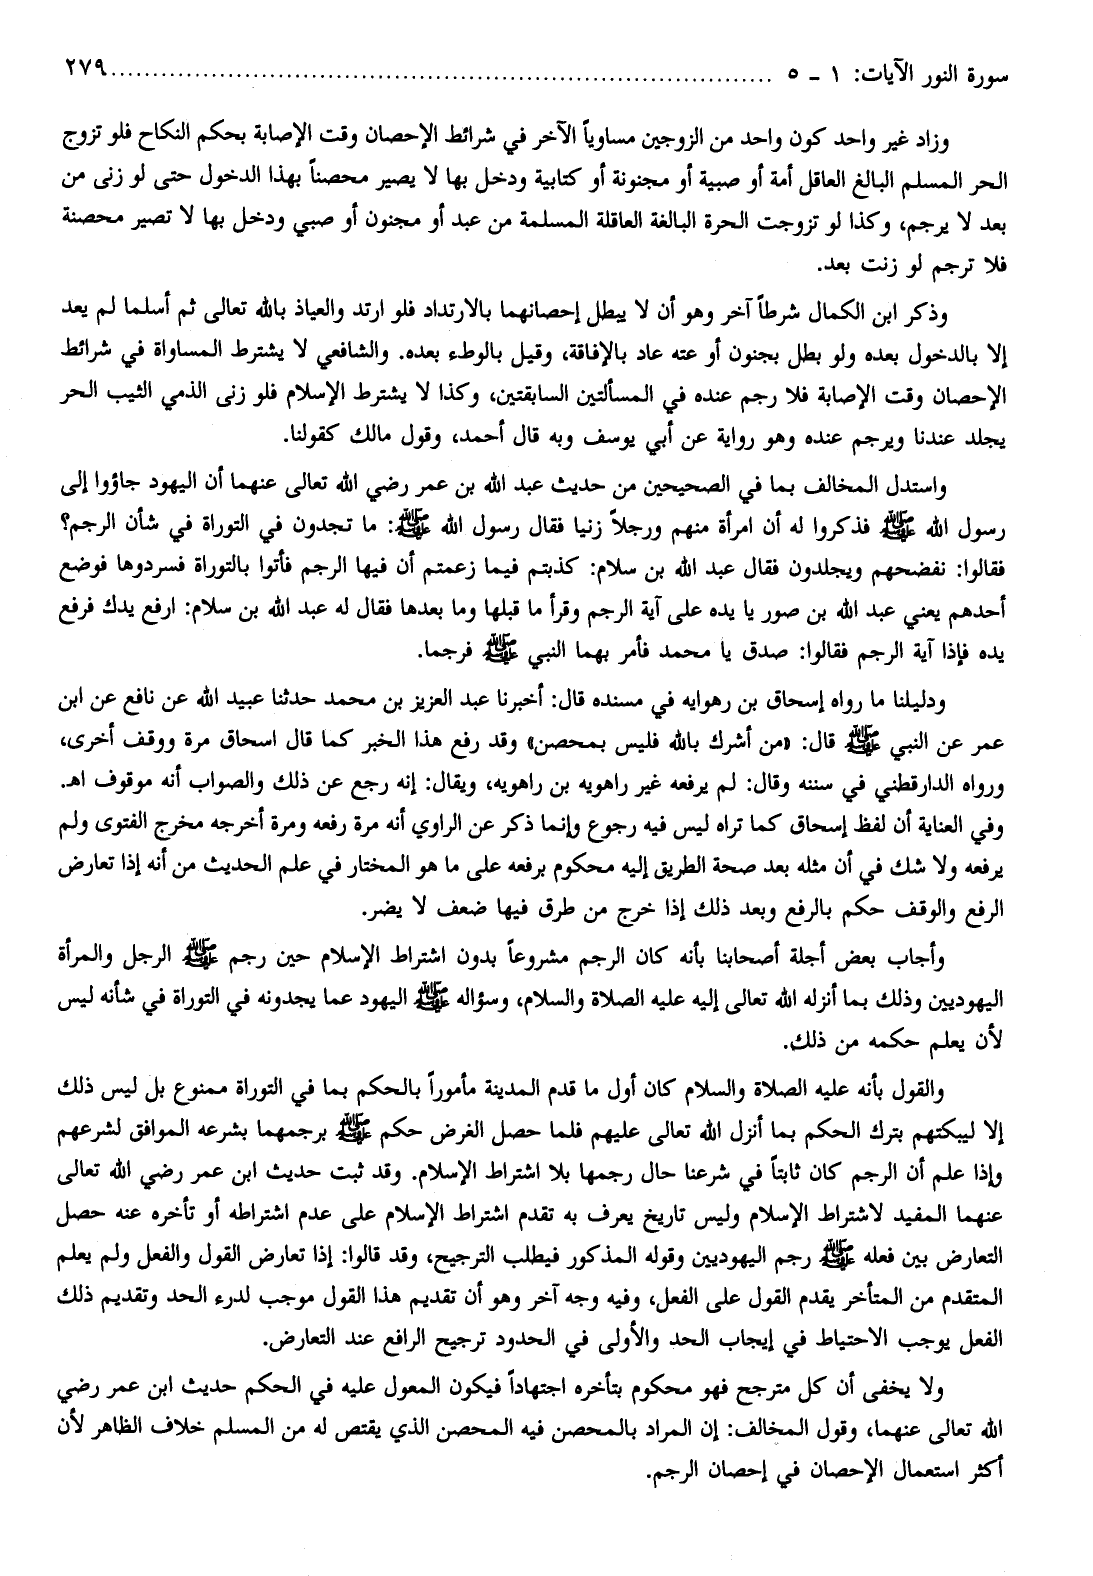 سورة النور الآيات: ١ ـ ٥ ................................................................................ ٢٧٩
وزاد غير واحد كون واحد من الزوجين مساوياً الآخر في شرائط الإحصان وقت الإصابة بحكم النكاح فلو تزوج
الحر المسلم البالغ العاقل أمة أو صبية أو مجنونة أو كتابية ودخل بها لا يصير محصناً بهذا الدخول حتى لو زنى من
بعد لا يرجم، وكذا لو تزوجت الحرة البالغة العاقلة المسلمة من عبد أو مجنون أو صبي ودخل بها لا تصير محصنة
فلا ترجم لو زنت بعد.
وذكر ابن الكمال شرطاً آخر وهو أن لا يبطل إحصانهما بالارتداد فلو ارتد والعياذ بالله تعالى ثم أسلما لم يعد
إلا بالدخول بعده ولو بطل بجنون أو عته عاد بالإفاقة، وقيل بالوطء بعده. والشافعي لا يشترط المساواة في شرائط
الإحصان وقت الإصابة فلا رجم عنده في المسألتين السابقتين، وكذا لا يشترط الإسلام فلو زنى الذمي الثيب الحر
يجلد عندنا ويرجم عنده وهو رواية عن أبي يوسف وبه قال أحمد، وقول مالك كقولنا.
واستدل المخالف بما في الصحيحين من حديث عبد الله بن عمر رضي الله تعالى عنهما أن اليهود جاؤوا إلى
رسول الله ﷺ فذكروا له أن امرأة منهم ورجلاً زنيا فقال رسول الله ﷺ: ما تجدون في التوراة في شأن الرجم؟
فقالوا: نفضحهم ويجلدون فقال عبد الله بن سلام: كذبتم فيما زعمتم أن فيها الرجم فأتوا بالتوراة فسردوها فوضع
أحدهم يعني عبد الله بن صور يا يده على آية الرجم وقرأ ما قبلها وما بعدها فقال له عبد الله بن سلام: ارفع يدك فرفع
يده فإذا آية الرجم فقالوا: صدق يا محمد فأمر بهما النبي ﷺ فرجما.
ودليلنا ما رواه إسحاق بن رهوايه في مسنده قال: أخبرنا عبد العزيز بن محمد حدثنا عبيد الله عن نافع عن ابن
عمر عن النبي ﷺ قال: «من أشرك بالله فليس بمحصن» وقد رفع هذا الخبر كما قال اسحاق مرة ووقف أخرى،
ورواه الدارقطني في سننه وقال: لم يرفعه غير راهويه بن راهويه، ويقال: إنه رجع عن ذلك والصواب أنه موقوف اهـ.
وفي العناية أن لفظ إسحاق كما تراه ليس فيه رجوع وإنما ذكر عن الراوي أنه مرة رفعه ومرة أخرجه مخرج الفتوى ولم
يرفعه ولا شك في أن مثله بعد صحة الطريق إليه محكوم برفعه على ما هو المختار في علم الحديث من أنه إذا تعارض
الرفع والوقف حكم بالرفع وبعد ذلك إذا خرج من طرق فيها ضعف لا يضر.
وأجاب بعض أجلة أصحابنا بأنه كان الرجم مشروعاً بدون اشتراط الإسلام حين رجم ﷺ الرجل والمرأة
اليهوديين وذلك بما أنزله الله تعالى إليه عليه الصلاة والسلام، وسؤاله ﷺ اليهود عما يجدونه في التوراة في شأنه ليس
لأن يعلم حكمه من ذلك.
والقول بأنه عليه الصلاة والسلام كان أول ما قدم المدينة مأموراً بالحكم بما في التوراة ممنوع بل ليس ذلك
إلا ليبكتهم بترك الحكم بما أنزل الله تعالى عليهم فلما حصل الغرض حكم ﷺ برجمهما بشرعه الموافق لشرعهم
وإذا علم أن الرجم كان ثابتاً في شرعنا حال رجمها بلا اشتراط الإسلام. وقد ثبت حديث ابن عمر رضي الله تعالى
عنهما المفيد لاشتراط الإسلام وليس تاريخ يعرف به تقدم اشتراط الإسلام على عدم اشتراطه أو تأخره عنه حصل
التعارض بين فعله ﷺ رجم اليهوديين وقوله المذكور فيطلب الترجيح، وقد قالوا: إذا تعارض القول والفعل ولم يعلم
المتقدم من المتأخر يقدم القول على الفعل، وفيه وجه آخر وهو أن تقديم هذا القول موجب لدرء الحد وتقديم ذلك
الفعل يوجب الاحتياط في إيجاب الحد والأولى في الحدود ترجيح الرافع عند التعارض.
ولا يخفى أن كل مترجح فهو محكوم بتأخره اجتهاداً فيكون المعول عليه في الحكم حديث ابن عمر رضي
الله تعالى عنهما، وقول المخالف: إن المراد بالمحصن فيه المحصن الذي يقتص له من المسلم خلاف الظاهر لأن
أكثر استعمال الإحصان في إحصان الرجم.